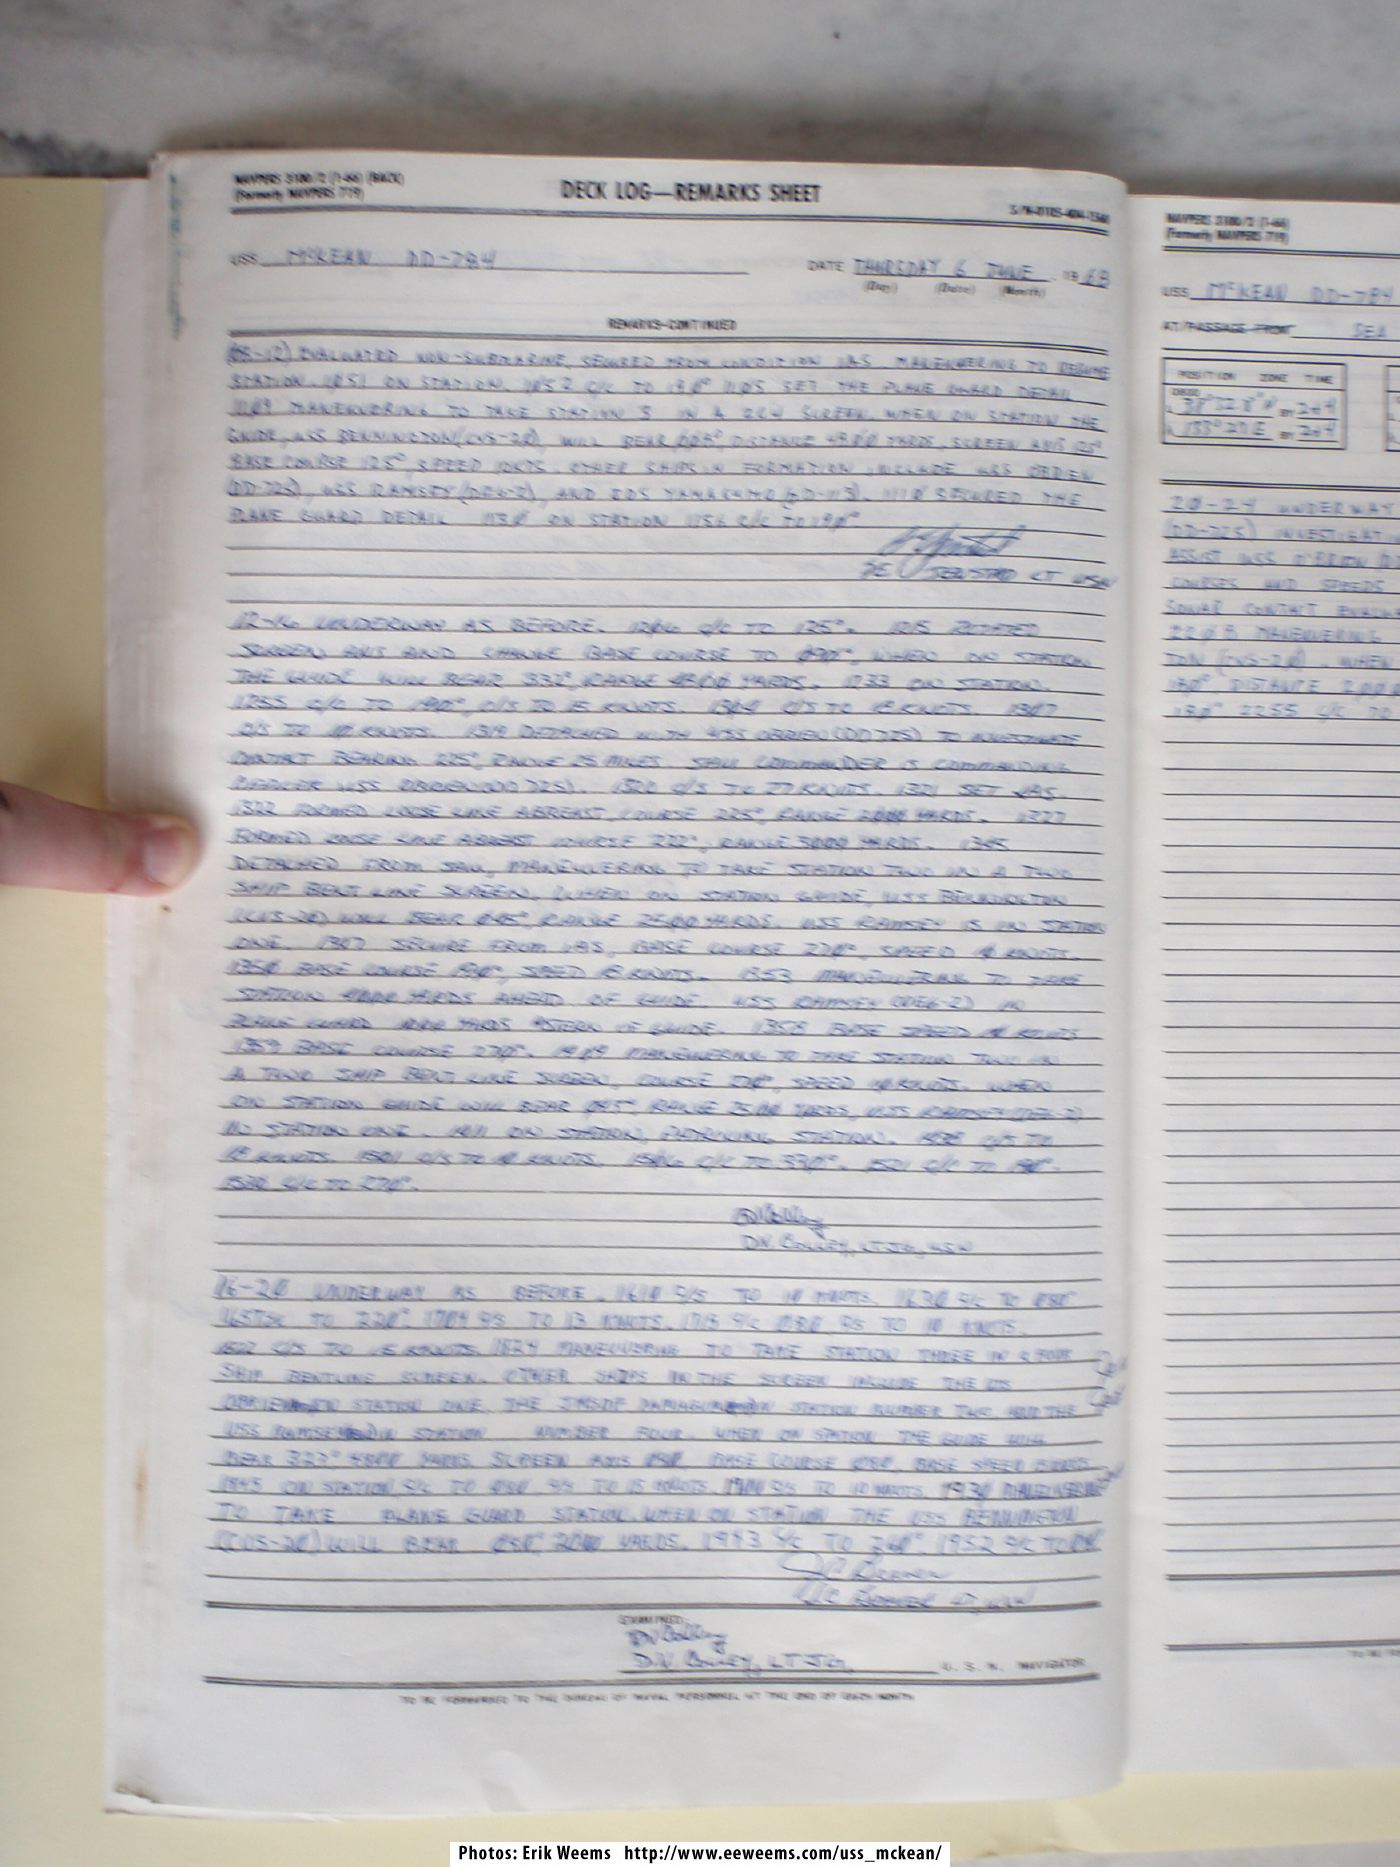 NAVPERS 3100/2 (1-66) (BACK)
(Formerly NAVPERS 719)
DECK LOG—REMARKS SHEET
S/N-0105-404-
USS McKEAN DD-784
DATE THURSDAY 6 JUNE, 1968
(Day) (Date) (Month)
REMARKS—CONTINUED
(08-12) EVALUATED NON-SUBMARINE, SECURED FROM CONDITION 1AS MANEUVERING TO RESUME
STATION. 1051 ON STATION. 1052 C/C TO 190° 1105 SET THE PLANE GUARD DETAIL
1109 MANEUVERING TO TAKE STATION 3 IN A SCREEN. WHEN ON STATION THE
GUIDE, USS BENNINGTON (CVS-20), WILL BEAR 005°, DISTANCE 4500 YARDS, SCREEN AXIS 125°
BASE COURSE 125°, SPEED 10KTS. OTHER SHIPS IN FORMATION INCLUDE USS OBRIEN
(DD-725), USS RAMSEY (DEG-2), AND (DD-113). 1110 SECURED THE
PLANE GUARD DETAIL 1130 ON STATION 1156 C/C TO 190°
LT USN
12-16 UNDERWAY AS BEFORE. 1206 C/C TO 125°. 1215 ROTATED
SCREEN AXIS AND CHANGE BASE COURSE TO 090°, WHEN ON STATION
THE GUIDE WILL BEAR 332°, RANGE 4500 YARDS. 1233 ON STATION.
1255 C/C TO 190°, C/S TO 15 KNOTS. 1304 C/S TO KNOTS. 1307
C/S TO KNOTS. 1319 DETACHED WITH USS OBRIEN (DD 725) TO INVESTIGATE
CONTACT BEARING 225°, RANGE 25 MILES. SAU COMMANDER IS COMMANDING
OFFICER USS OBRIEN (DD 725). 1320 C/S TO 27 KNOTS. 1321 SET 1AS
1322 FORMED LOOSE LINE ABREAST, COURSE 225°, RANGE 2000 YARDS. 1327
FORMED LOOSE LINE ABREAST COURSE 222°, RANGE 3000 YARDS. 1345
DETACHED FROM SAU, MANEUVERING TO TAKE STATION TWO IN A TWO
SHIP BENT LINE SCREEN, WHEN ON STATION GUIDE, USS BENNINGTON
(CVS-20) WILL BEAR 045°, RANGE 2500 YARDS. USS RAMSEY IS IN STATION
ONE. 1347 SECURE FROM 1AS, BASE COURSE 270°, SPEED KNOTS.
1350 BASE COURSE 190°, SPEED KNOTS. 1353 MANEUVERING TO TAKE
STATION 4000 YARDS AHEAD OF GUIDE. USS RAMSEY (DEG-2) IN
PLANE GUARD 1000 YARDS ASTERN OF GUIDE. 1358 BASE SPEED KNOTS
1359 BASE COURSE 270°. 1409 MANEUVERING TO TAKE STATION TWO IN
A TWO SHIP BENT LINE SCREEN, COURSE 270°, SPEED 10 KNOTS. WHEN
ON STATION GUIDE WILL BEAR 045°, RANGE 2500 YARDS, USS RAMSEY (DEG-2)
IN STATION ONE. 1411 ON STATION, PATROLING STATION. C/S TO
KNOTS. 1501 C/S TO KNOTS. 1506 C/C TO 330°. 1521 C/C TO 190°.
1530 C/C TO 270°.
D.V. Colley, LTJG, USN
16-20 UNDERWAY AS BEFORE. 1610 C/S TO 10 KNOTS. 1630 C/C TO 080°
1657 C/C TO 220°. 1704 C/S TO 13 KNOTS. 1715 C/C 080, C/S TO 10 KNOTS.
1822 C/S TO 15 KNOTS. 1824 MANEUVERING TO TAKE STATION THREE IN A FOUR
SHIP BENTLINE SCREEN. OTHER SHIPS IN THE SCREEN INCLUDE THE USS
OBRIEN IN STATION ONE, THE JMSDF IN STATION NUMBER TWO AND THE
USS RAMSEY IN STATION NUMBER FOUR. WHEN ON STATION THE GUIDE WILL
BEAR 327° 4500 YARDS. SCREEN AXIS 080, BASE COURSE 080, BASE SPEED KNOTS.
1845 ON STATION, C/C TO 080, C/S TO 15 KNOTS. 1900 C/S TO 10 KNOTS. 1930 MANEUVERING
TO TAKE PLANE GUARD STATION. WHEN ON STATION THE USS BENNINGTON
(CVS-20) WILL BEAR 080°, 2000 YARDS. 1943 C/C TO 260°. 1952 C/C TO
LT, USN
EXAMINED
D.V. Colley, LTJG, U. S. N. NAVIGATOR
TO BE FORWARDED TO THE BUREAU OF NAVAL PERSONNEL AT THE END OF EACH MONTH
NAVPERS 3100/2 (1-66)
(Formerly NAVPERS 719)
USS McKEAN DD-784
AT/PASSAGE FROM SEA
POSITION ZONE TIME
0800
BY
BY
20-24 UNDERWAY
(DD-725) INVESTIGATIN
ASSIST USS O'BRIEN (D
COURSES AND SPEEDS
SONAR CONTACT EVALU
2205 MANEUVERING
TON (CVS-20). WHEN
180°, DISTANCE 200
180° 2255 C/C TO
Photos: Erik Weems http://www.eeweems.com/uss_mckean/